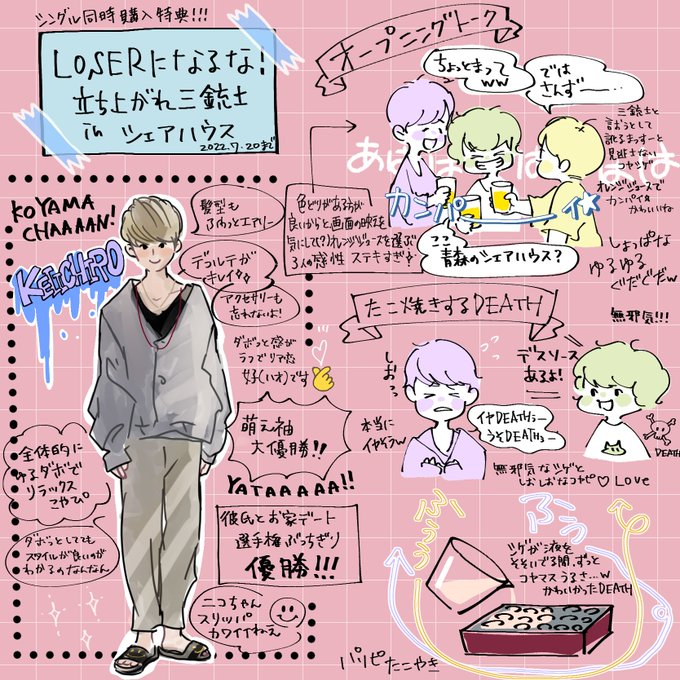 シングル同時購入特典!!!
LOSERになるな!
立ち上がれ三銃士
in シェアハウス
2022.7.20まで
KOYAMA
CHAAAAN!
KEIICHIRO
髪型も
ふわっとエアリー
デコルテが
キレイ
アクセサリーも
忘れないよ!
ダボッと感が
ラフでリアルな
好(いオ)です
萌え袖
大優勝!!
YATAAAAA!!
彼氏とお家デート
選手権ぶっちぎり
優勝!!!
ニコちゃん
スリッパ
カワイイねえ
全体的に
ゆるダボで
リラックス
こやぴ。
ダボっとしてても
スタイルが良いのが
わかるのなんなん
オープニングトーク
ちょっとまって
ww
では
さんずー……
三銃士と
言おうとして
訛るまっすーと
見逃さない
コヤシゲ
オレンジジュースで
カンパイ☆
かわいいね
あははははは
カンパーイ☆
色どりがある方が
良いからと画面の映えを
気にして!?オレンジジュースを選ぶ
3人の感性 ステキすぎ?
ここ
青森のシェアハウス?
しょっぱな
ゆるゆる
ぐだぐだw
無邪気!!!
たこ焼きするDEATH
しおっ
本当に
イヤそうw
イヤDEATHぅー
うそDEATHぅー
デスソース
あるよ!
DEATH
無邪気なシゲと
しおしおなコヤピ♡Love
ふぅぅ
ふぅ
シゲが液を
そそいでる間、ずっと
コヤマスうるさ…w
かわいかったDEATH
パリピたこやき